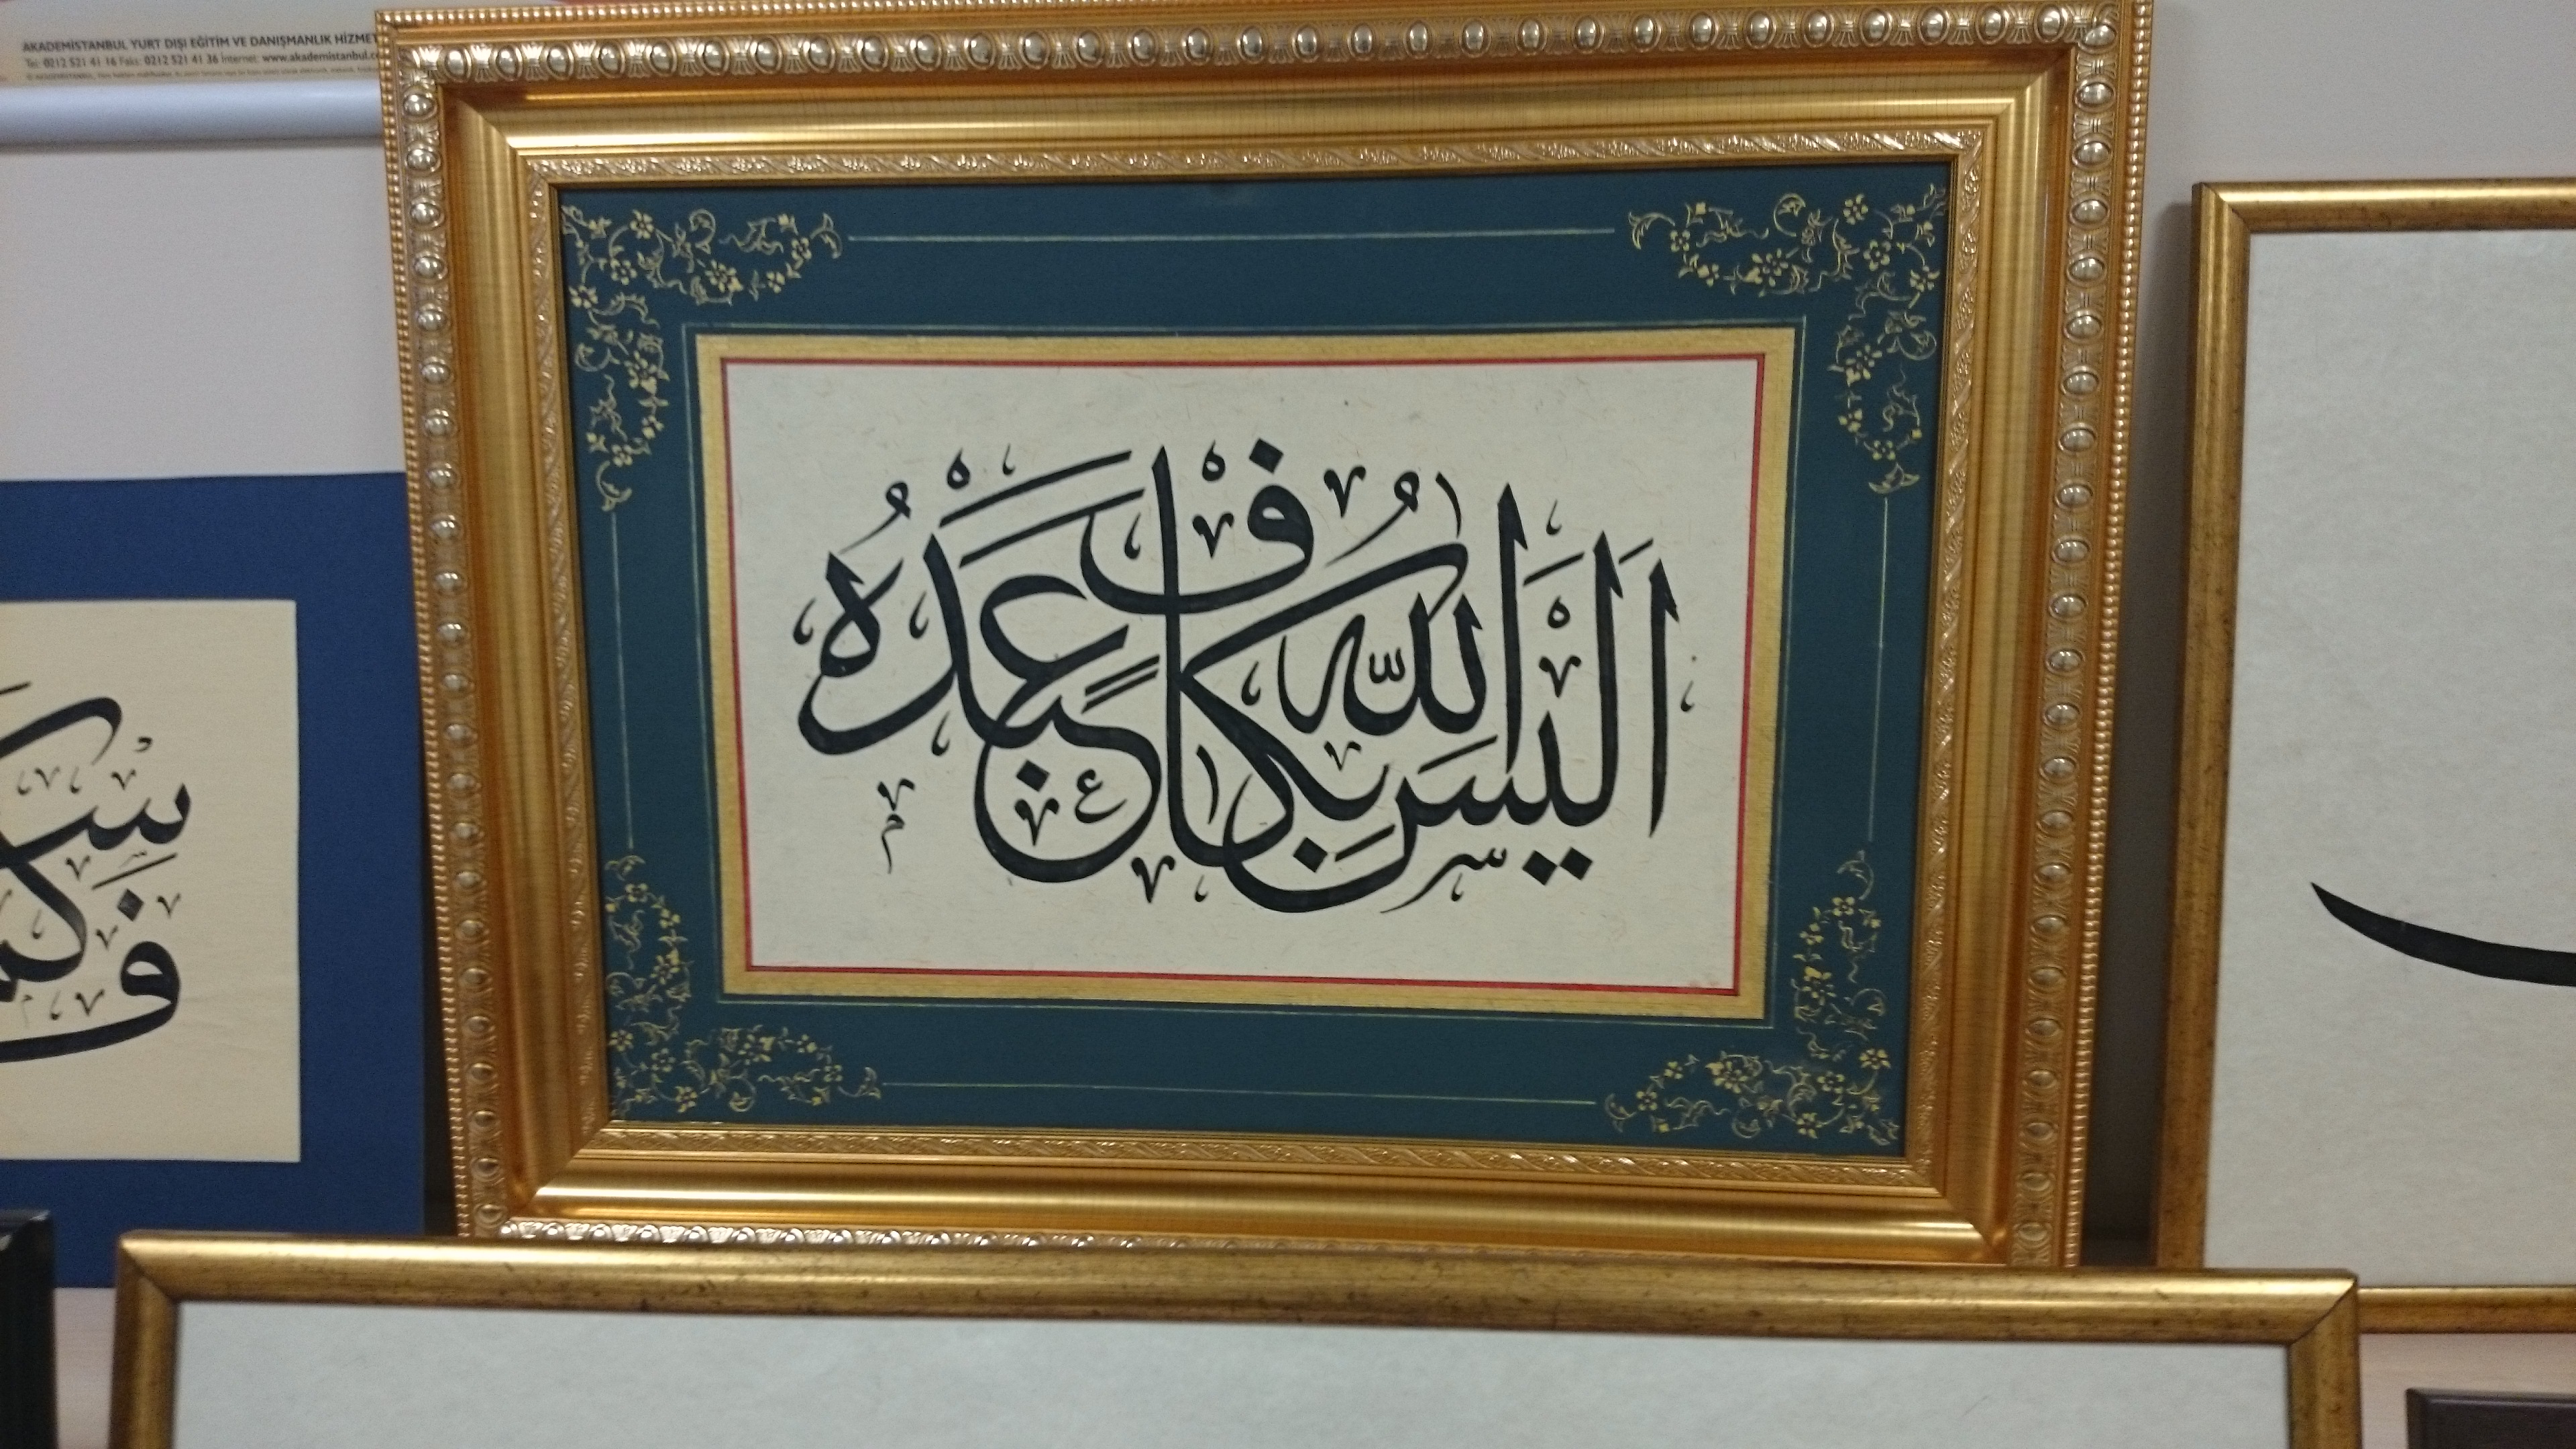 AKADEMİSTANBUL YURT DIŞI EĞİTİM VE DANIŞMANLIK HİZMET
Tel: 0212 521 41 16 Faks: 0212 521 41 36 internet: www.akademistanbul.c
اَلَيْسَ اللّٰهُ بِكَافٍ عَبْدَهُ